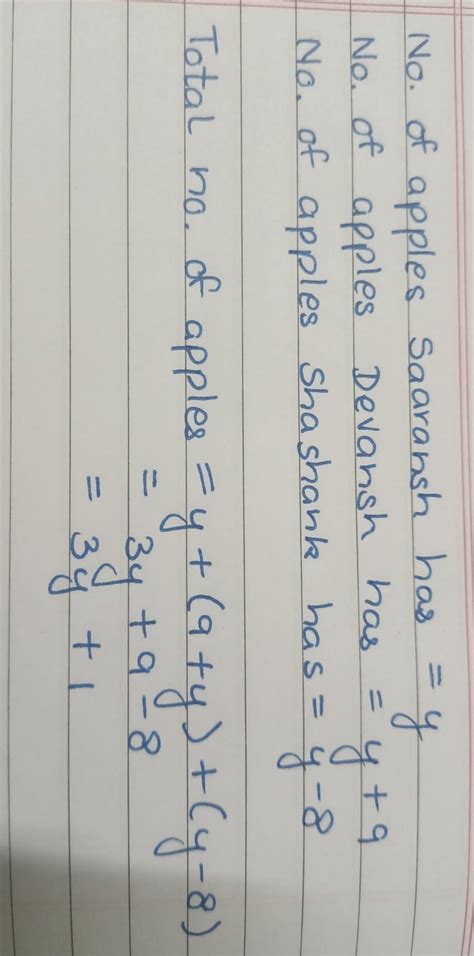 No. of apples Saaransh has = y
No. of apples Devansh has = y + 9
No. of apples Shashank has = y - 8
Total no. of apples = y + (9 + y) + (y - 8)
= 3y + 9 - 8
= 3y + 1